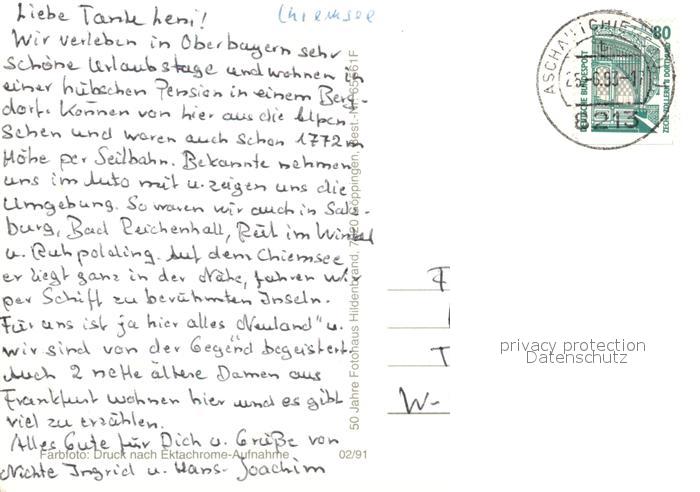 Liebe Tante Leni!
Chiemsee
Wir verleben in Oberbayern sehr
schöne Urlaubstage und wohnen in
einer hübschen Pension in einem Berg-
dorf. Können von hier aus die Alpen
sehen und waren auch schon 1772 m
Höhe per Seilbahn. Bekannte nehmen
uns im Auto mit u. zeigen uns die
Umgebung. So waren wir auch in Salz-
burg, Bad Reichenhall, Reit im Winkel
u. Ruhpolding. Auf dem Chiemsee
er liegt ganz in der Nähe, fahren wir
per Schiff zu berühmten Inseln.
Für uns ist ja hier alles "Neuland" u.
wir sind von der Gegend begeistert.
Auch 2 nette ältere Damen aus
Frankfurt wohnen hier und es gibt
viel zu erzählen.
Alles Gute für Dich u. Grüße von
Nichte Ingrid u. Hans-Joachim
Farbfoto: Druck nach Ektachrome-Aufnahme
02/91
50 Jahre Fotohaus Hildenbrand, 7320 Göppingen, Best.-Nr.
ASCHAU I. CHIE
6.93-17
8213
80
DEUTSCHE BUNDESPOST
ZECHE ZOLLERN II DORTMUND
T
W-
privacy protection
Datenschutz